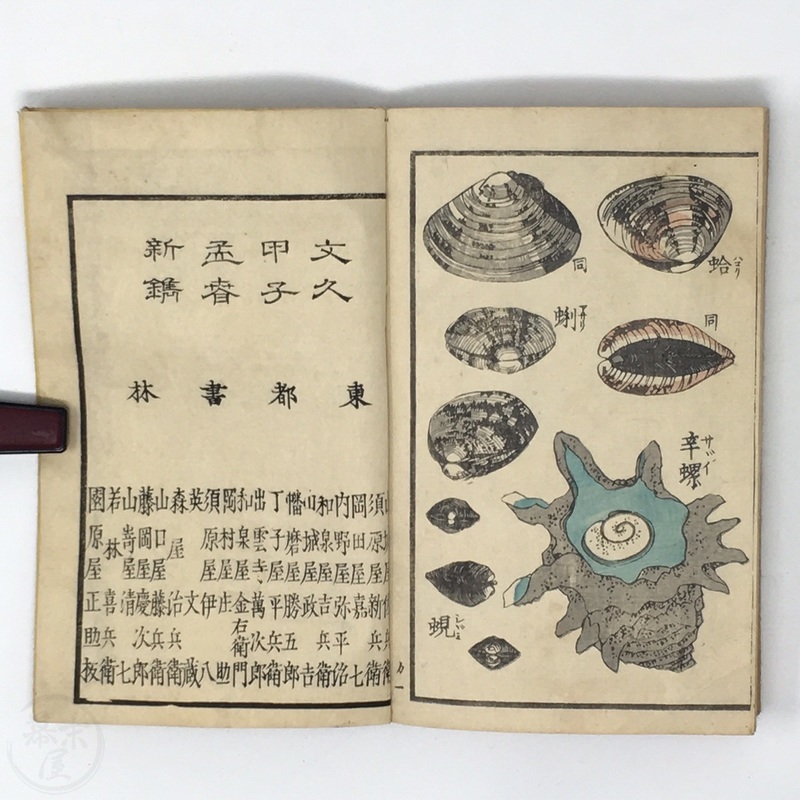 蛤
同
同
蜊
アサリ
辛螺
サザイ
蜆
文久
甲子
孟春
新鐫
東都書林
須原屋新兵衛
岡田屋嘉七
内野屋弥平治
和泉屋吉兵衛
山城屋政吉
幡磨屋勝五郎
丁子屋平兵衛
出雲寺萬次郎
和泉屋金右衛門
岡村屋庄助
須原屋伊八
英文蔵
森屋治兵衛
山口屋藤兵衛
藤岡屋慶次郎
山嵜屋清七
若林喜兵衛
園原屋正助板